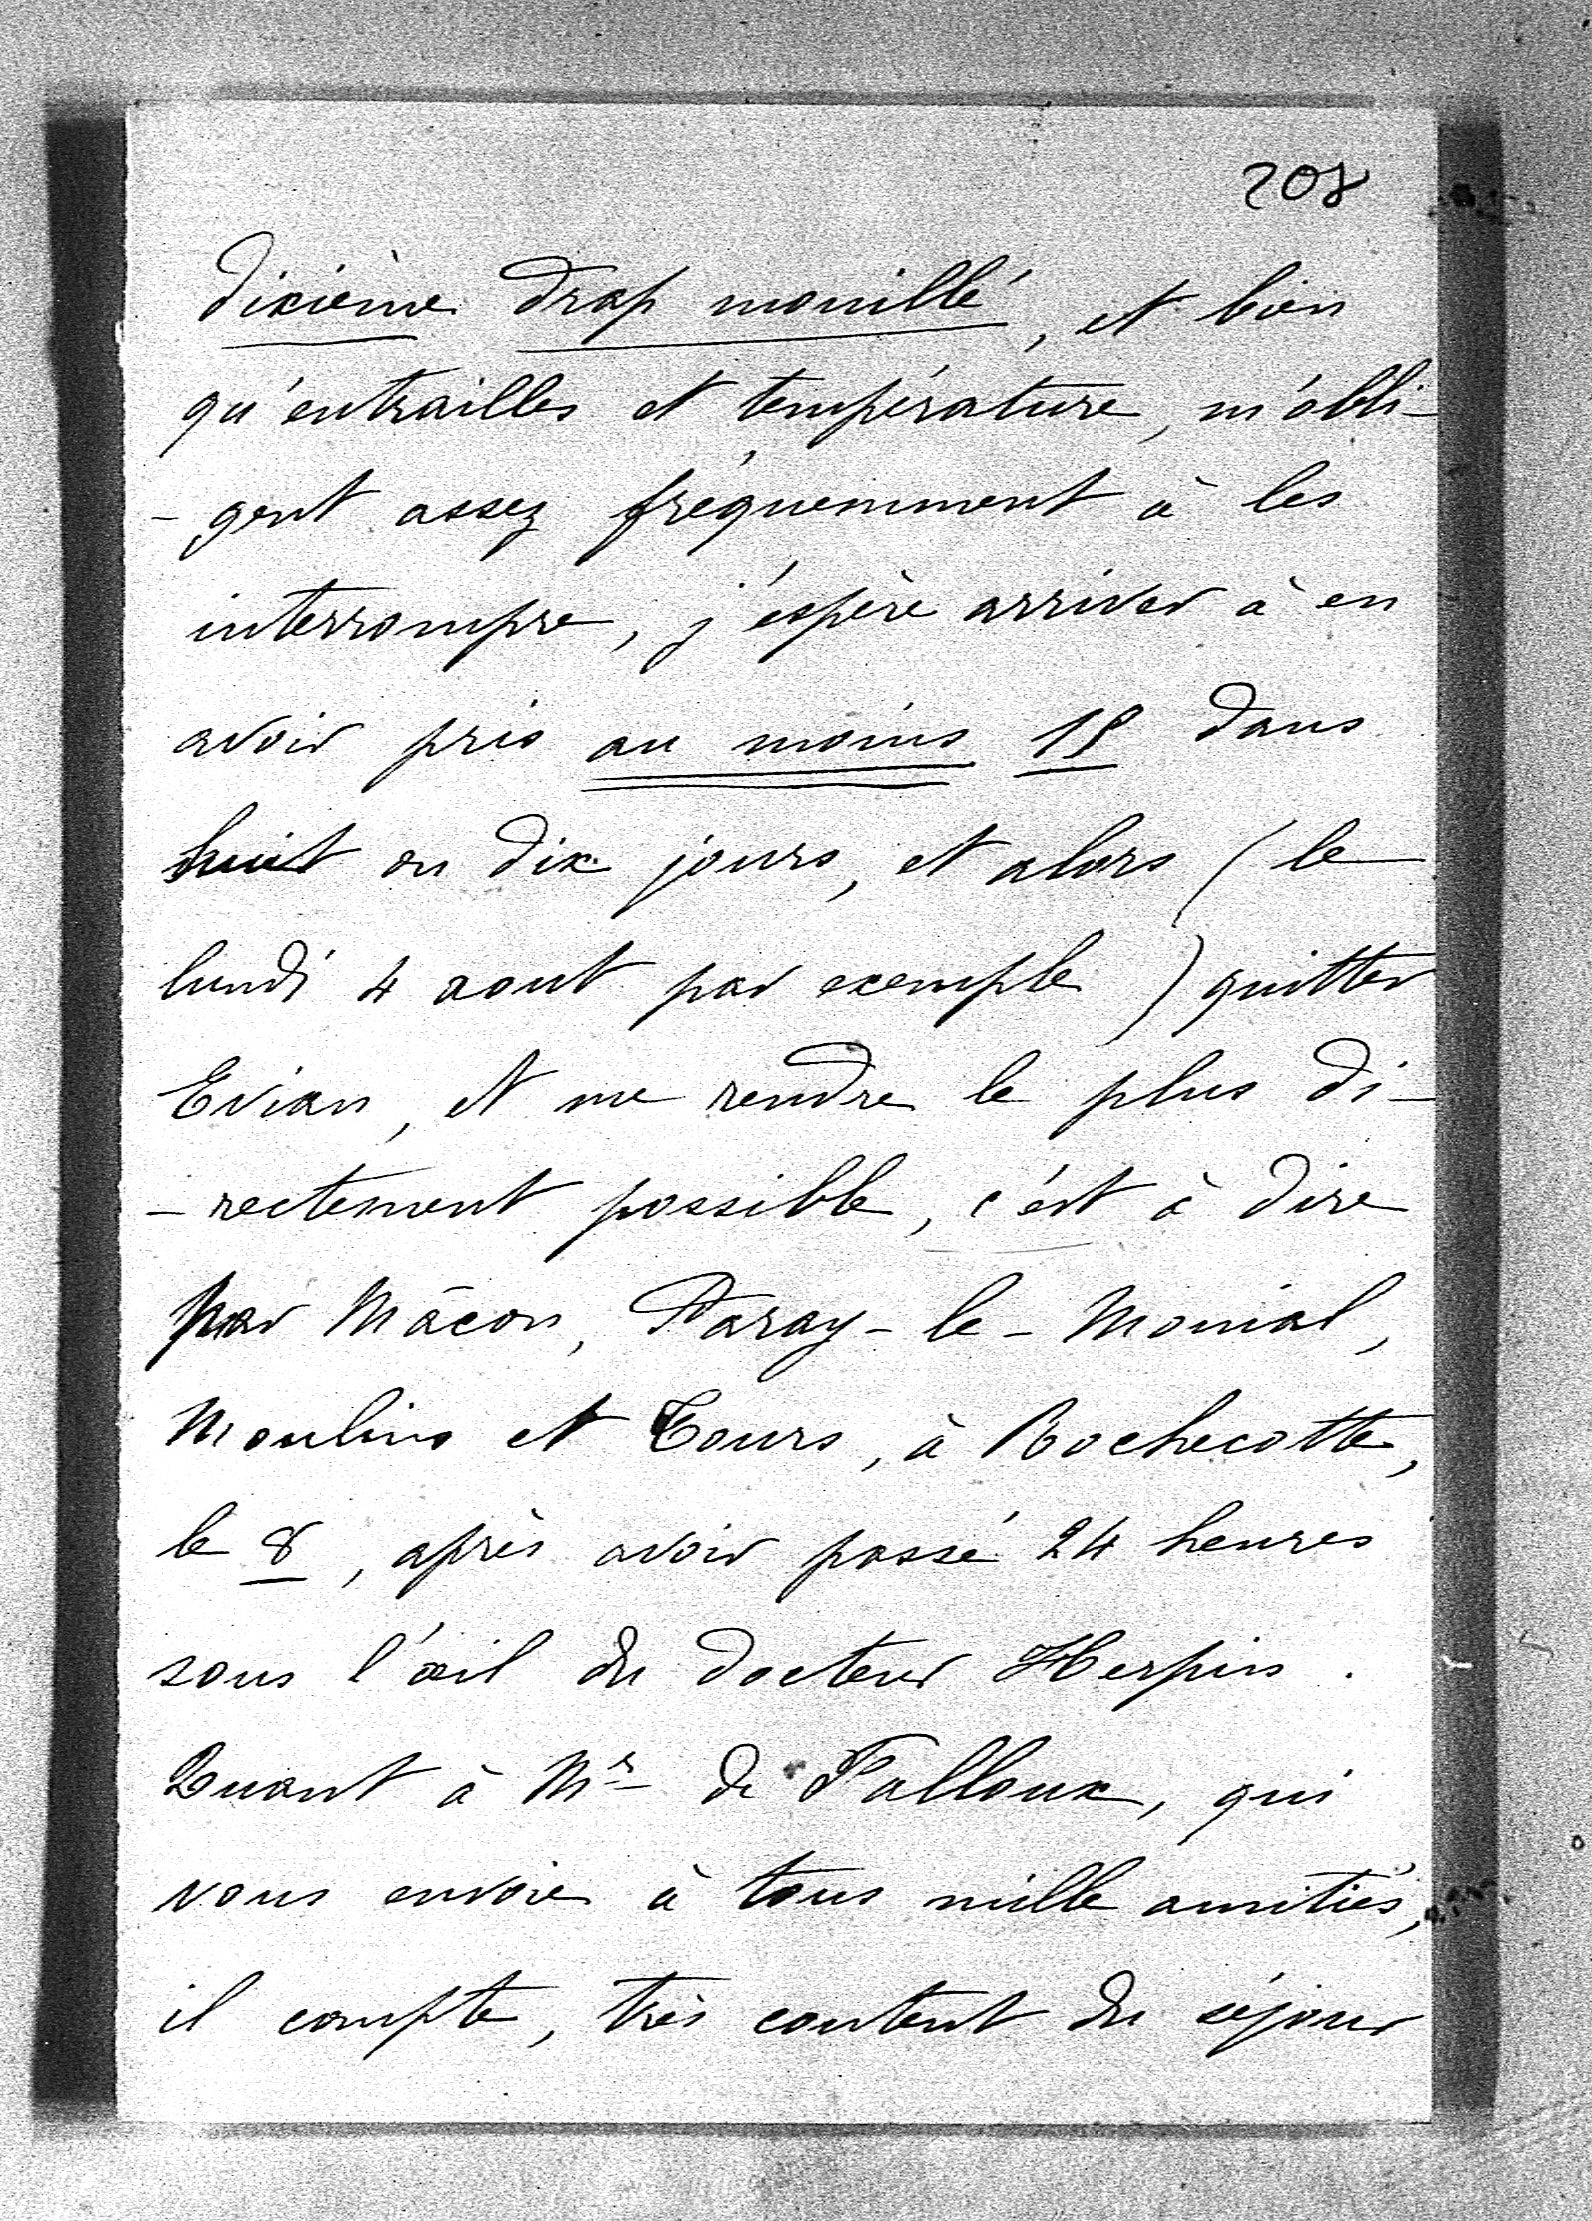 208
dixième drap mouillé, et bien
qu'entrailles et température, m'obli-
-gent assez fréquemment à les
interrompre, j'espère arriver à en
avoir pris au moins 15 dans
huit ou dix jours, et alors (le
lundi 4 aout par exemple) quitter
Evian, et me rendre le plus di-
-rectement possible, c'est à dire
par Mâcon, Paray-le-Monial,
Moulins et Tours, à Rochecotte,
le 8, après avoir passé 24 heures
sous l'œil du docteur Herpin.
Quant à Mr de Falloux, qui
vous envoie à tous mille amitiés,
il compte, très content du séjour